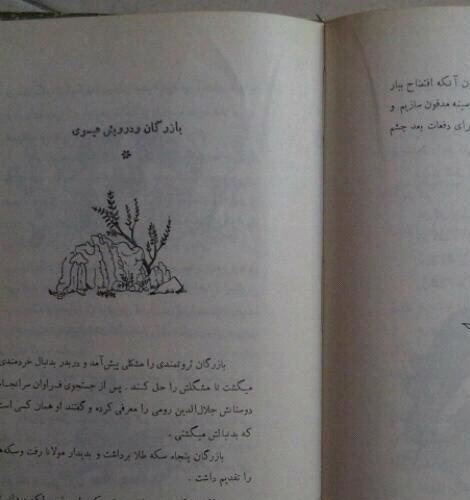 ن آنکه افتضاح ببار
سینه مدفون سازیم و
رای دفعات بعد چشم
بازرگان و درویش عیسوی
*
بازرگان ثروتمندی را مشکلی پیش‌آمد و دربدر بدنبال خردمندی
میگشت تا مشکلش را حل کند. پس از جستجوی فراوان سرانجام
دوستانش جلال‌الدین رومی را معرفی کرده و گفتند او همان کسی است
که بدنبالش میگشتی.
بازرگان پنجاه سکه طلا برداشت و بدیدار مولانا رفت وسکه‌ها
را تقدیم داشت.